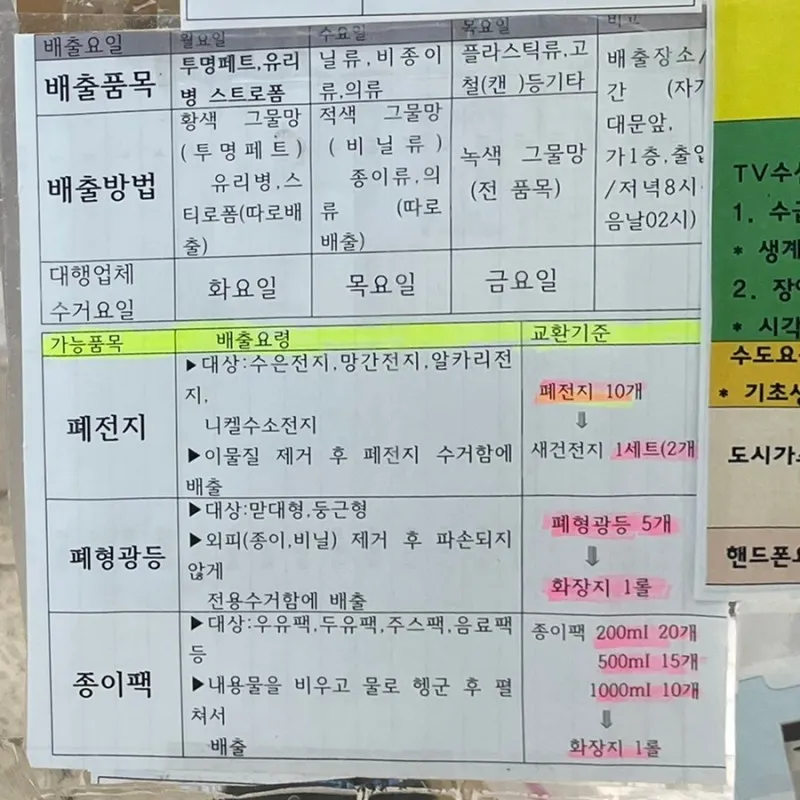 배출요일 월요일 수요일 목요일 비고
배출품목
투명페트,유리
병 스트로폼
닐류,비종이
류,의류
플라스틱류,고
철(캔 )등기타
배출방법
황색 그물망
(투명페트)
유리병,스
티로폼(따로배
출)
적색 그물망
(비닐류)
종이류,의
류 (따로
배출)
녹색 그물망
(전 품목)
배출장소/
간 (자가
대문앞,
가1층,출입
/저녁8시
음날02시)
대행업체
수거요일
화요일 목요일 금요일
가능품목 배출요령 교환기준
폐전지
▶대상:수은전지,망간전지,알카리전
지,
니켈수소전지
▶이물질 제거 후 폐전지 수거함에
배출
폐전지 10개
⇩
새건전지 1세트(2개
폐형광등
▶대상:맏대형,둥근형
▶외피(종이,비닐) 제거 후 파손되지
않게
전용수거함에 배출
폐형광등 5개
⇩
화장지 1롤
종이팩
▶대상:우유팩,두유팩,주스팩,음료팩
등
▶내용물을 비우고 물로 헹군 후 펼
쳐서
배출
종이팩 200ml 20개
500ml 15개
1000ml 10개
⇩
화장지 1롤
TV수신
1. 수급
* 생계
2. 장애
* 시각
수도요
* 기초생
도시가스
핸드폰요